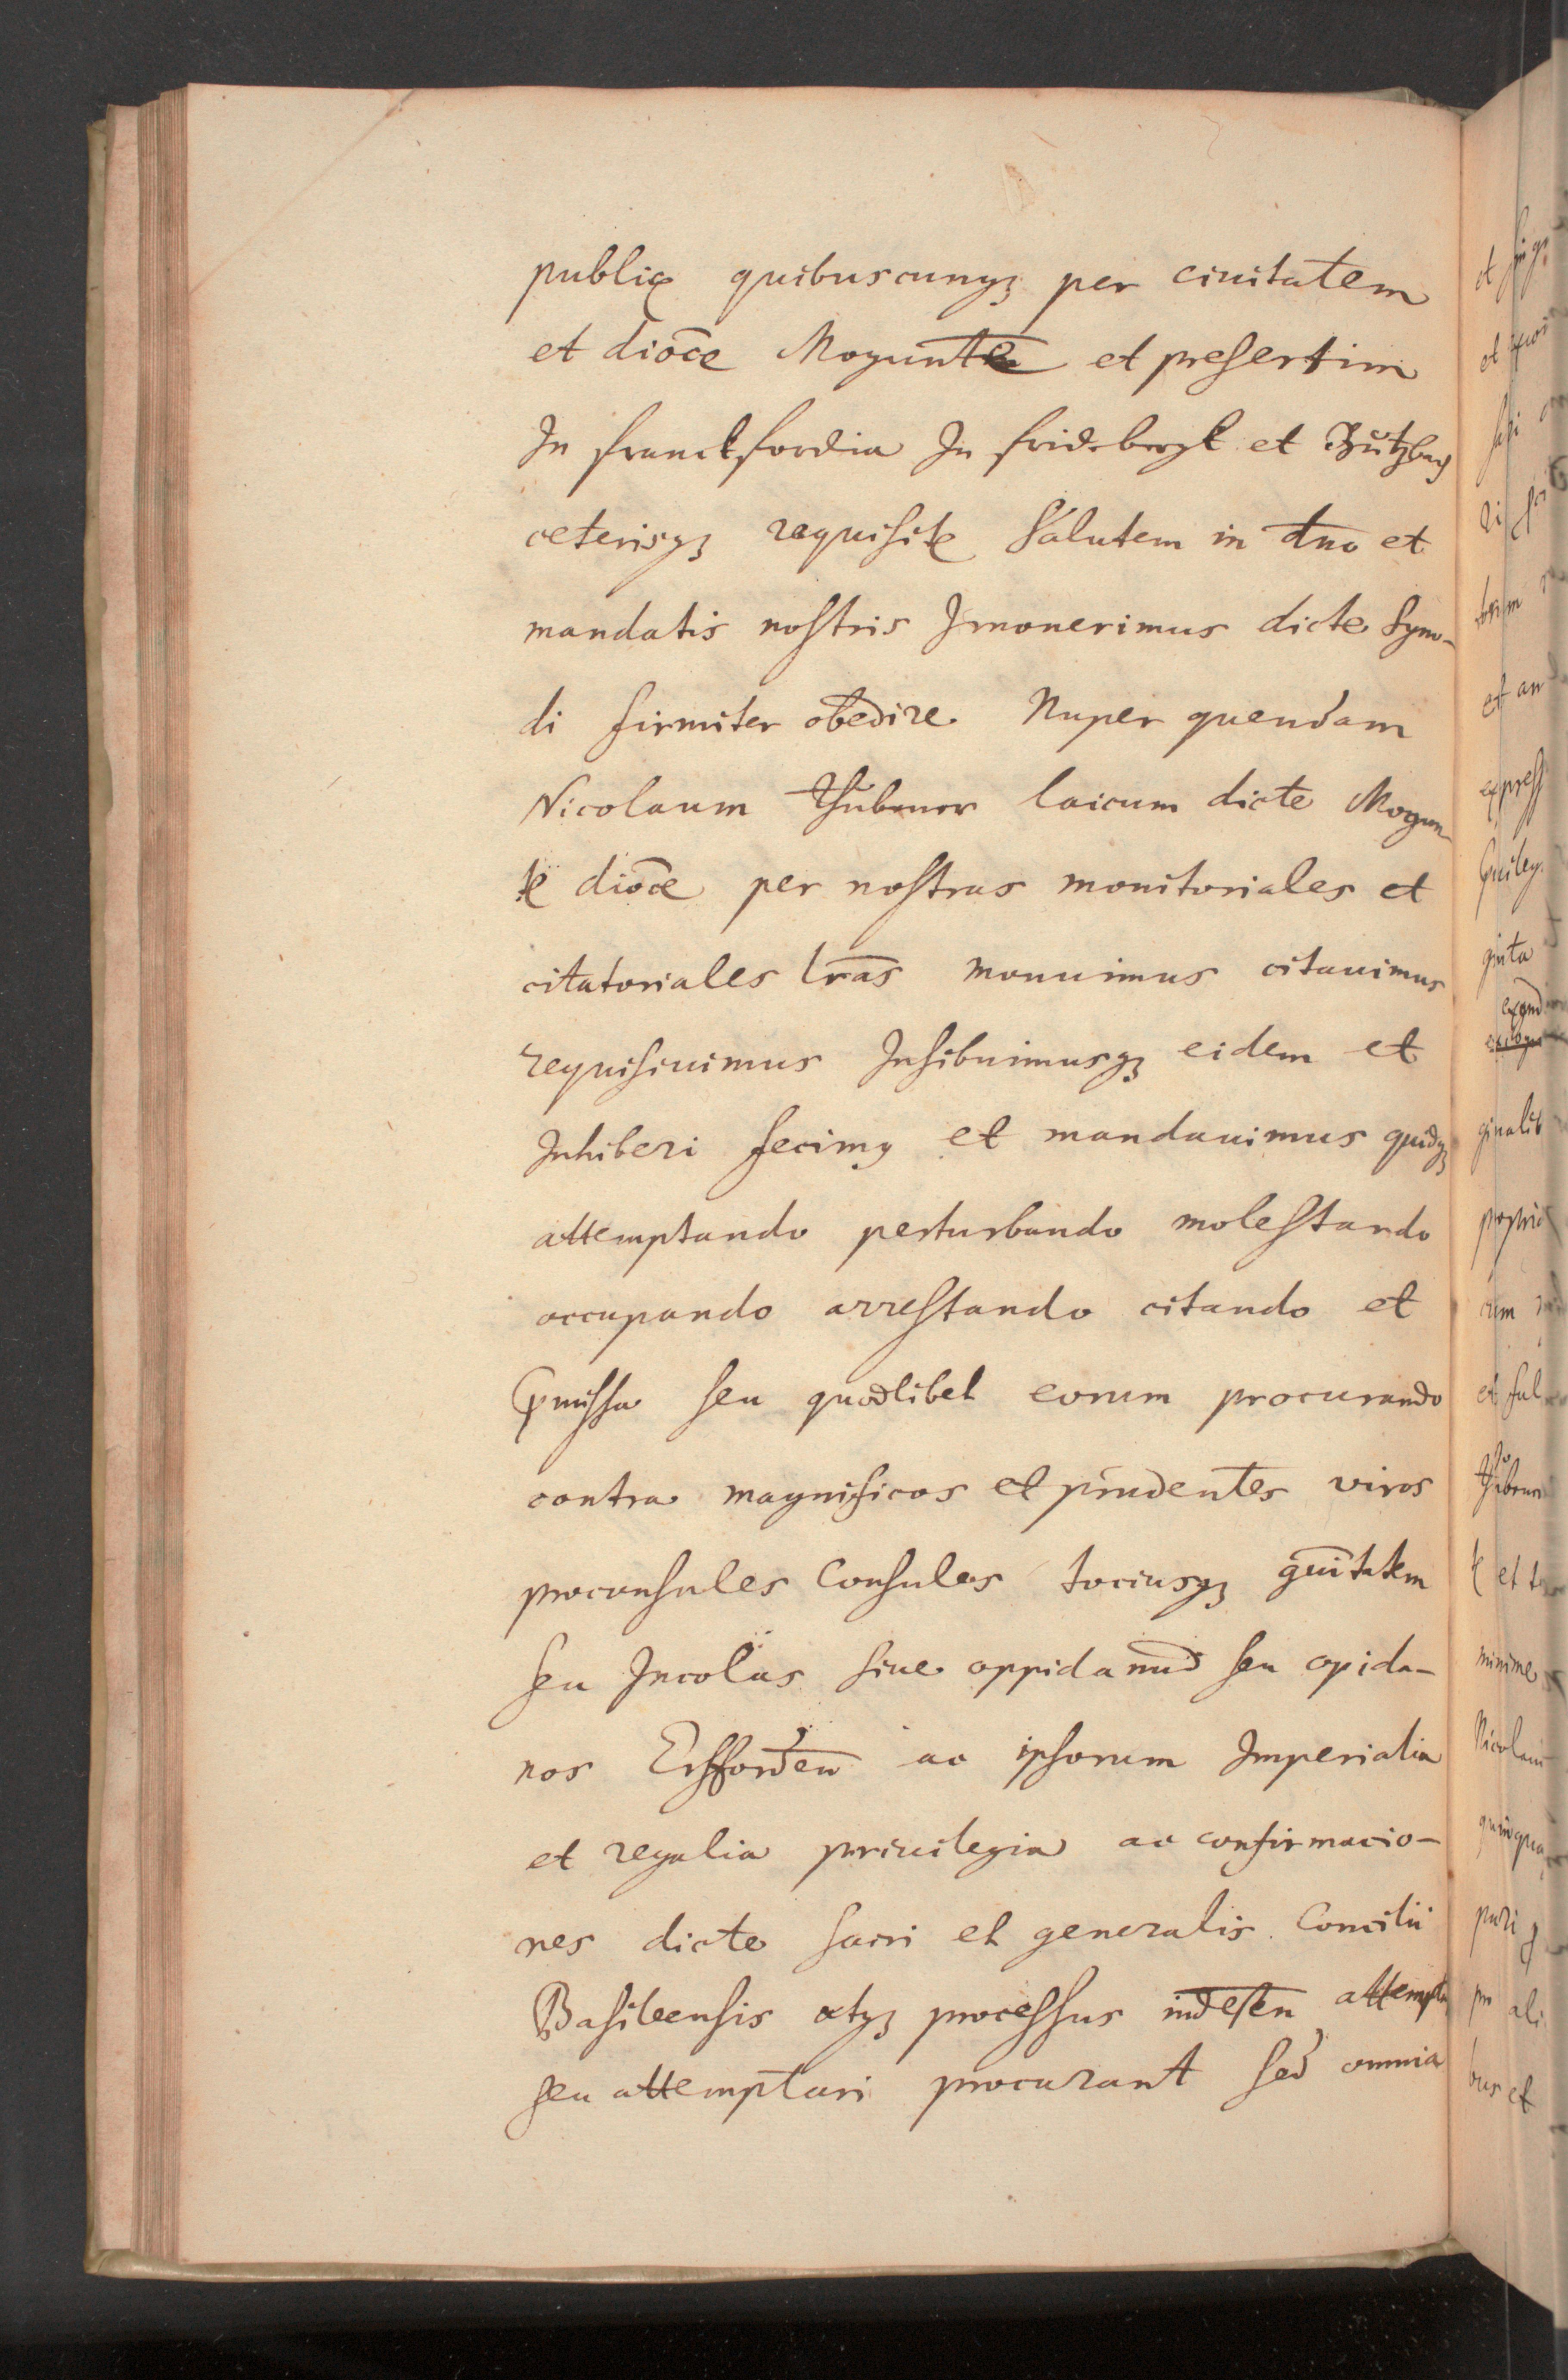 publicꝭ quibuscunqꝫ per ciuitatem
et dioc̄e Mogunte᷒ et preſertim
In franckfordia In frideberg et Butzbach
ceterisqꝫ requiſite Salutem in dn̄o et
mandatis noſtris Jmonerimus dicte Syno-
di firmiter obedire Nuper quendam
Nicolaum Thubener laicum dicte Mogun
te dioc̄e per noſtras monitoriales et
citatoriales lr̄as monuimus citauimus
requiſiuimus Inhibuimusqꝫ eidem et
Inhiberi fecimꝰ et mandauimus quidqꝫ
attemptando perturbando moleſtando
occupando arreſtando citando et
seu quodlibet eorum procurando
contra magnificos et prudentes viros
proconſules Conſules tociusqꝫ
ſeu Incolas ſiue oppidanu͞d ſeu opida-
nos Erffordeñ ac ipſorum Imperialia
et regalia priuilegia ac confirmacio-
nes dicte ſacri et generalis Concilii
Baſileenſis atqꝫ proceſſus attempta
ſeu attemptari procurant ſed omnia